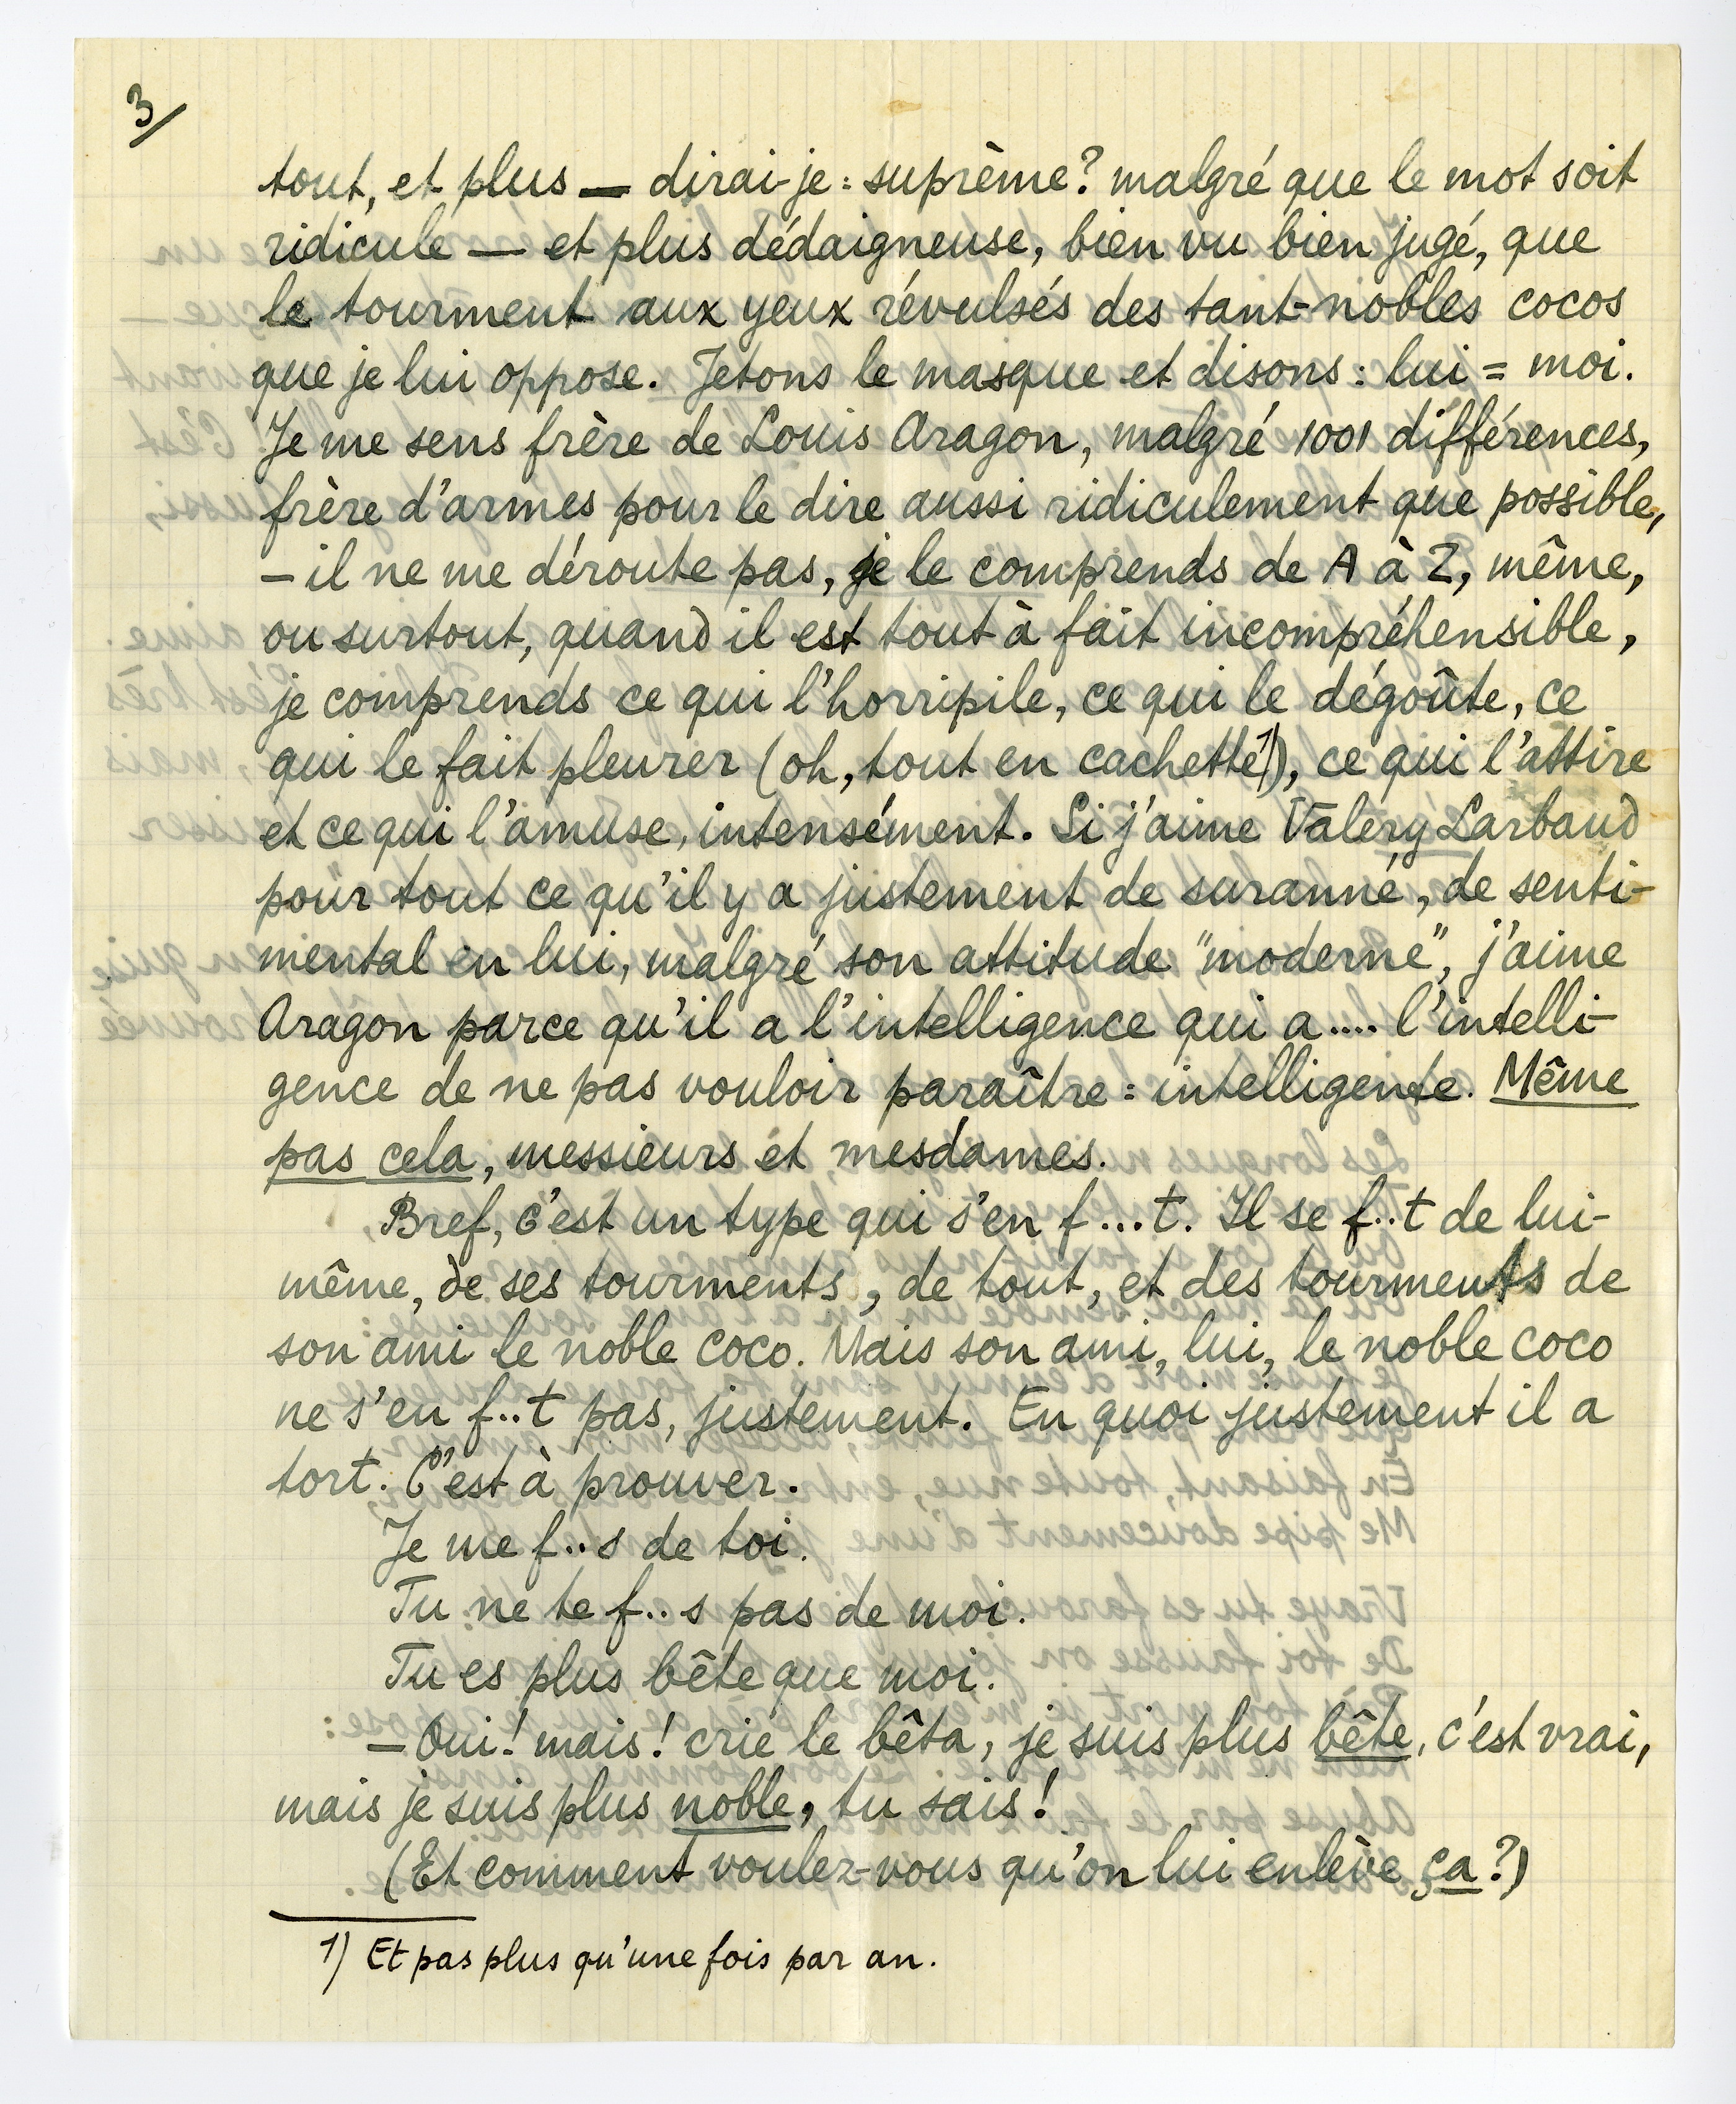 3/
tout, et plus — dirai-je : suprême? malgré que le mot soit
ridicule — et plus dédaigneuse, bien vu bien jugé, que
le tourment aux yeux révulsés des tant-nobles cocos
que je lui oppose. Jetons le masque et disons : lui = moi.
Je me sens frère de Louis Aragon, malgré 1001 différences,
frère d'armes pour le dire aussi ridiculement que possible,
– il ne me déroute pas, je le comprends de A à Z, même,
ou surtout, quand il est tout à fait incompréhensible,
je comprends ce qui l'horripile, ce qui le dégoûte, ce
qui le fait pleurer (oh, tout en cachette 1)), ce qui l'attire
et ce qui l'amuse, intensément. Si j'aime Valéry Larbaud
pour tout ce qu'il y a justement de suranné, de senti-
mental en lui, malgré son attitude "moderne", j'aime
Aragon parce qu'il a l'intelligence qui a .... l'intelli-
gence de ne pas vouloir paraître : intelligente. Même
pas cela, messieurs et mesdames.
Bref, c'est un type qui s'en f...t. Il se f..t de lui-
même, de ses tourments, de tout, et des tourments de
son ami le noble coco. Mais son ami, lui, le noble coco
ne s'en f..t pas, justement. En quoi justement il a
tort. C'est à prouver.
Je me f..s de toi.
Tu ne te f..s pas de moi.
Tu es plus bête que moi.
— Oui! mais! crie le bêta, je suis plus bête, c'est vrai,
mais je suis plus noble, tu sais!
(Et comment voulez-vous qu'on lui enlève ça?)
1) Et pas plus qu'une fois par an.